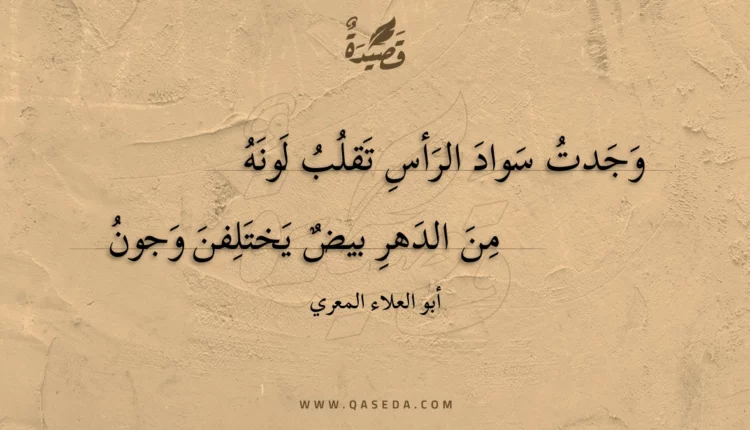 قَصِيْدَةٌ
وَجَدتُ سَوادَ الرَأسِ تَقلُبُ لَونَهُ
مِنَ الدَهرِ بيضٌ يَختَلِفنَ وَجونُ
أبو العلاء المعري
WWW.QASEDA.COM